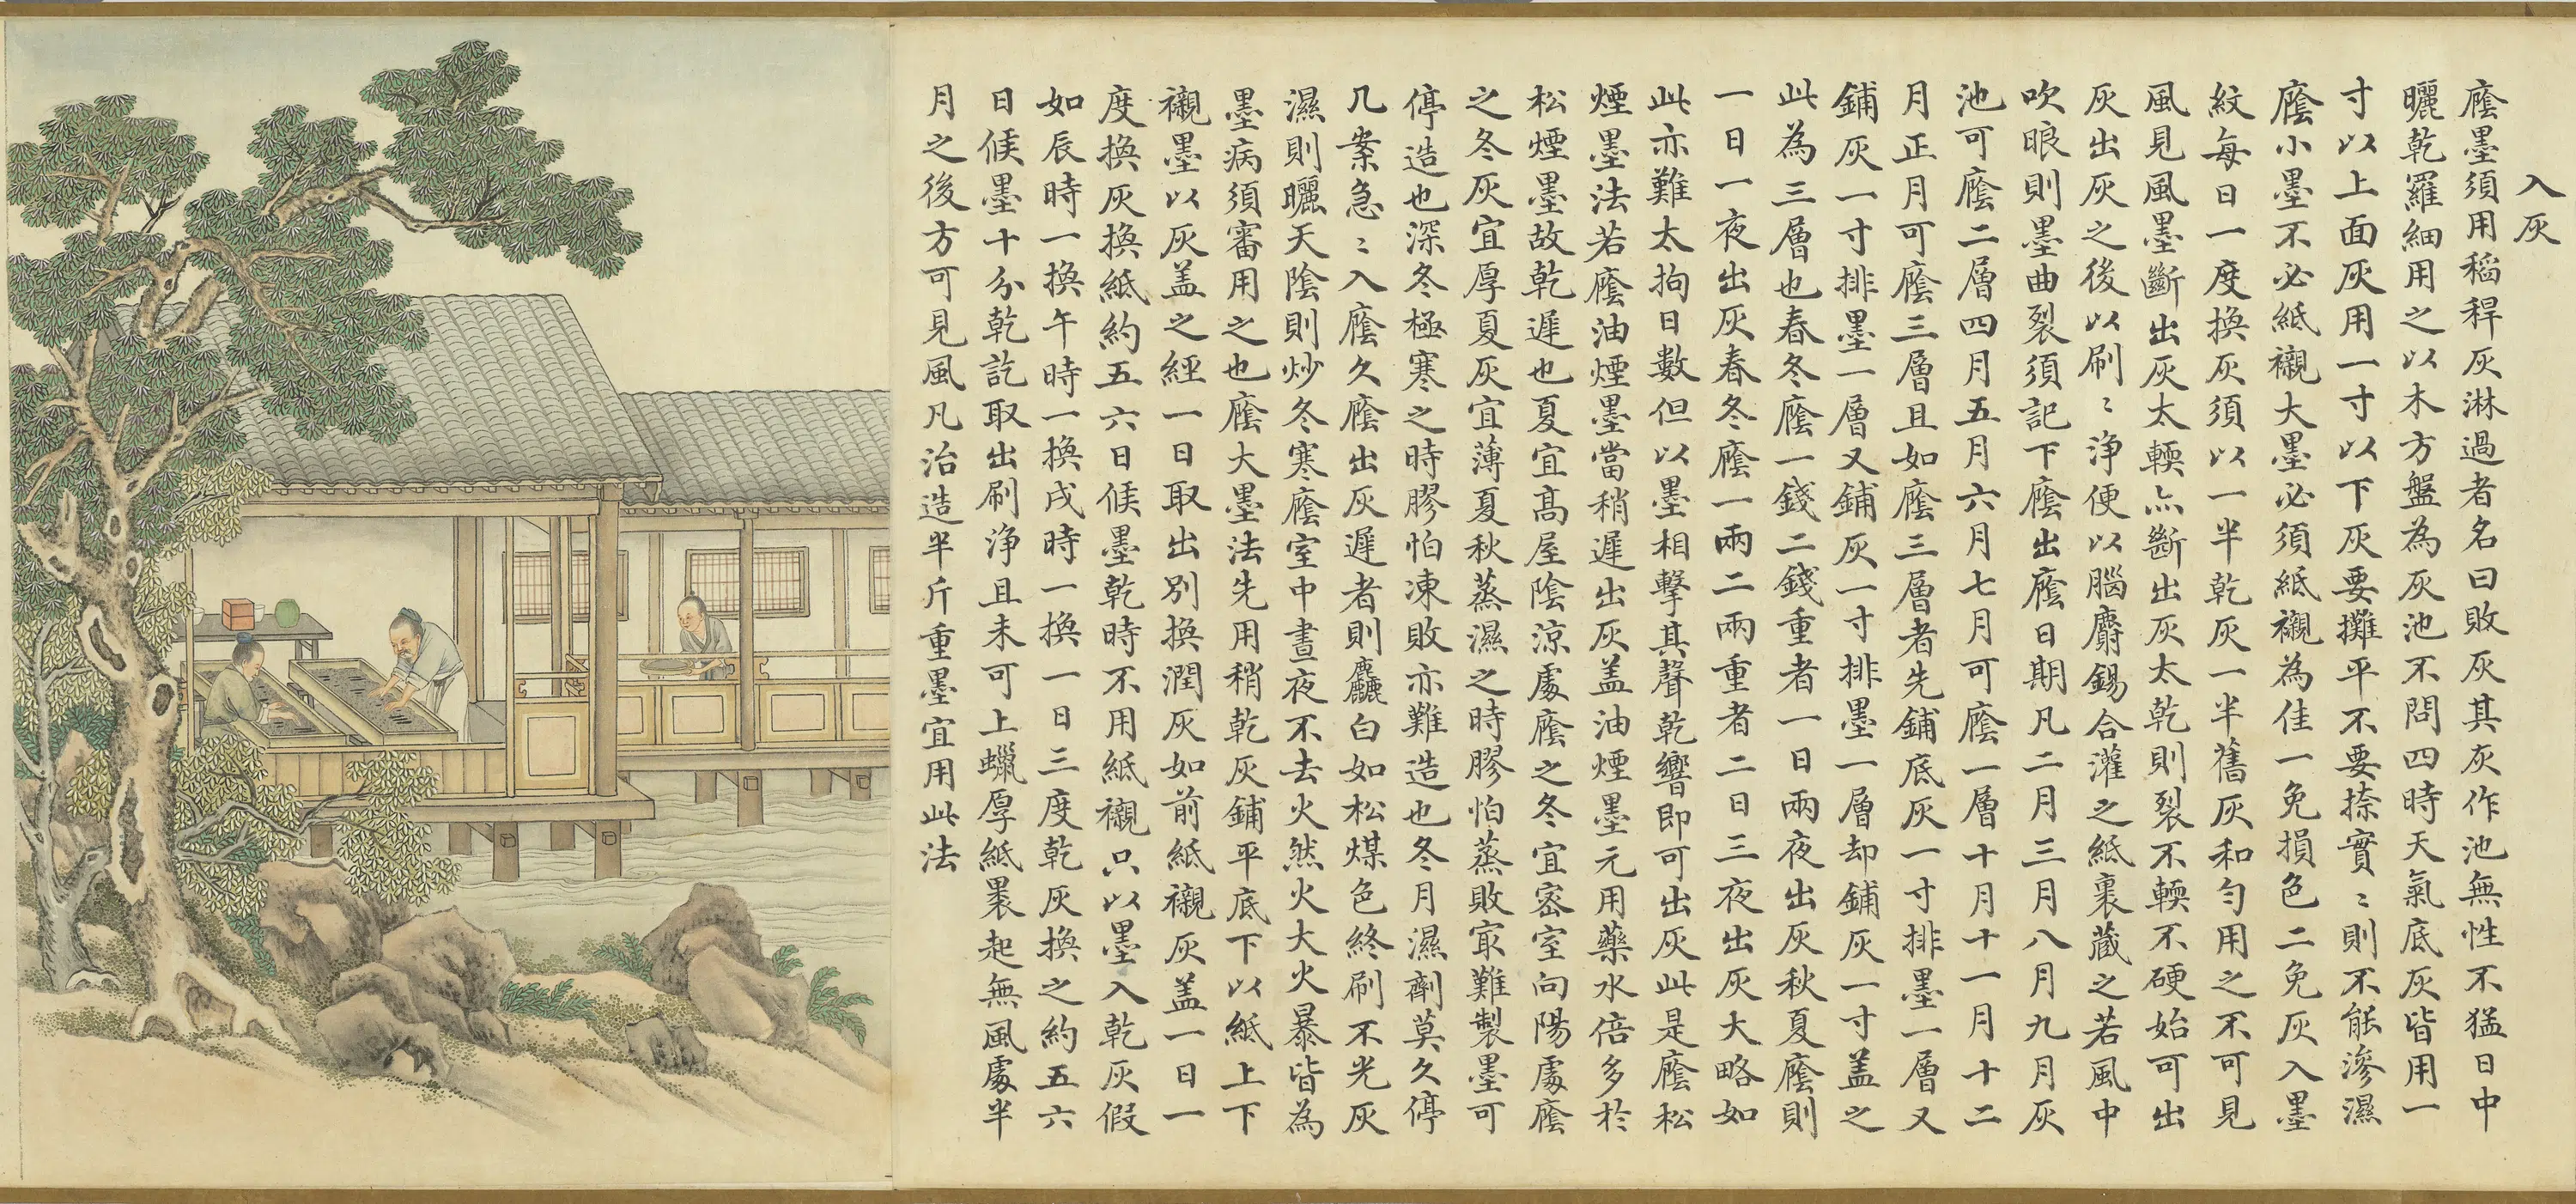 入灰
廕墨須用稻稈灰淋過者名曰敗灰其灰作池無性不猛日中
曬乾羅細用之以木方盤為灰池不問四時天氣底灰皆用一
寸以上面灰用一寸以下灰要攤平不要捺實〻則不能滲濕
廕小墨不必紙襯大墨必須紙襯為佳一免損色二免灰入墨
紋每日一度換灰須以一半乾灰一半舊灰和勻用之不可見
風見風墨斷出灰太輭亦斷出灰太乾則裂不輭不硬始可出
灰出灰之後以刷〻淨便以腦麝錫合灌之紙裹藏之若風中
吹眼則墨曲裂須記下廕出廕日期凡二月三月八月九月灰
池可廕二層四月五月六月七月可廕一層十月十一月十二
月正月可廕三層且如廕三層者先鋪底灰一寸排墨一層又
鋪灰一寸排墨一層又鋪灰一寸排墨一層却鋪灰一寸盖之
此為三層也春冬廕一錢二錢重者一日兩夜出灰秋夏廕則
一日一夜出灰春冬廕一兩二兩重者二日三夜出灰大略如
此亦難太拘日數但以墨相擊其聲乾響即可出灰此是廕松
煙墨法若廕油煙墨當稍遲出灰盖油煙墨元用藥水倍多於
松煙墨故乾遲也夏宜高屋陰涼處廕之冬宜密室向陽處廕
之冬灰宜厚夏灰宜薄夏秋蒸濕之時膠怕蒸敗㝡難製墨可
停造也深冬極寒之時膠怕凍敗亦難造也冬月濕劑莫久停
几案急〻入廕久廕出灰遲者則麤白如松煤色終刷不光灰
濕則曬天陰則炒冬寒廕室中晝夜不去火然火大火暴皆為
墨病須審用之也廕大墨法先用稍乾灰鋪平底下以紙上下
襯墨以灰盖之經一日取出別換潤灰如前紙襯灰盖一日一
度換灰換紙約五六日候墨乾時不用紙襯只以墨入乾灰假
如辰時一換午時一換戌時一換一日三度乾灰換之約五六
日候墨十分乾訖取出刷淨且未可上蠟厚紙裹起無風處半
月之後方可見風凡治造半斤重墨宜用此法